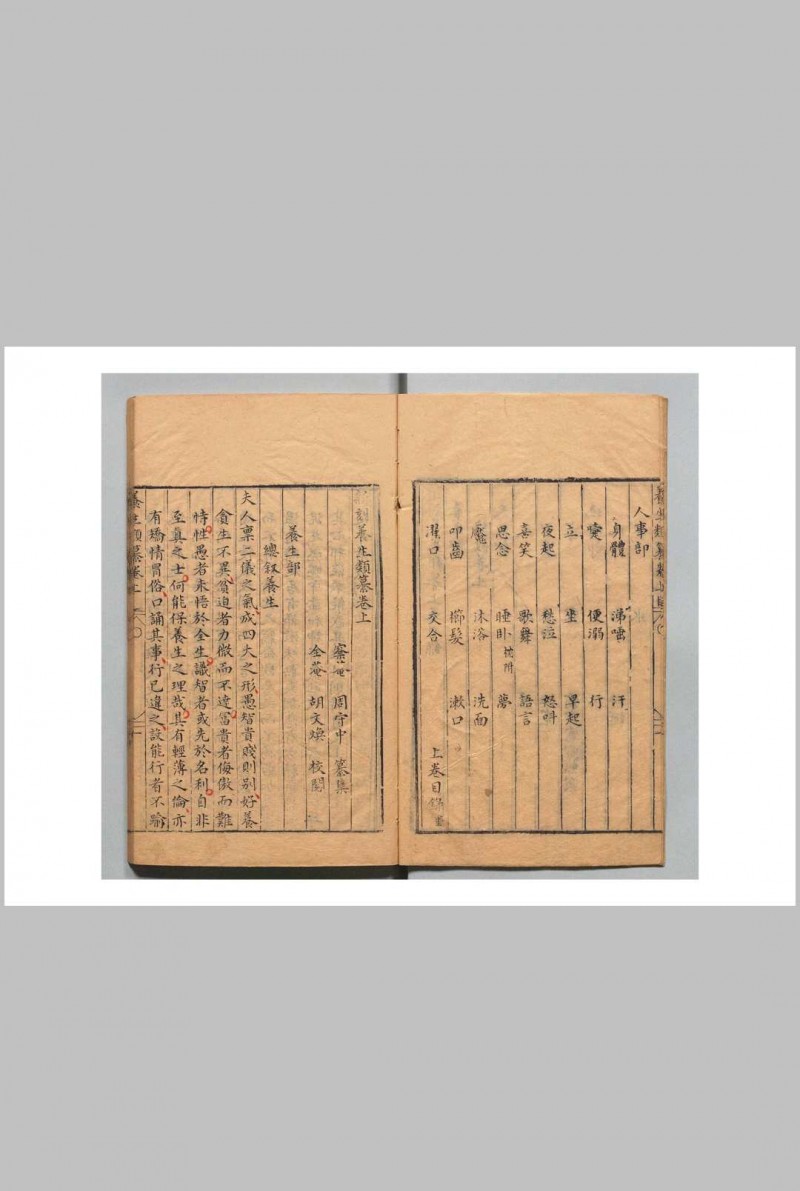 人事部
身體 涕唾 汗
便溺 行
立 坐 早起
夜起 愁泣 怒叫
喜笑 歌舞 語言
思念 睡卧 枕附 夢
魘 沐浴 洗面
叩齒 櫛髮 漱口
濯口 交合
上卷目錄畢
刻養生類纂卷上
周守中 纂集
全菴 胡文煥 校閱
養生部
總叙養生
夫人禀二儀之氣成四大之形愚智貴賤則別好養
貪生不異貧迫者力微而不達富貴者侮傲而難
恃性愚者未悟於全生識智者或先於名利自非
至真之士何能保養生之理哉其有輕薄之倫亦
有矯情冒俗口誦其事行已違之設能行者不踰
養生類纂卷上